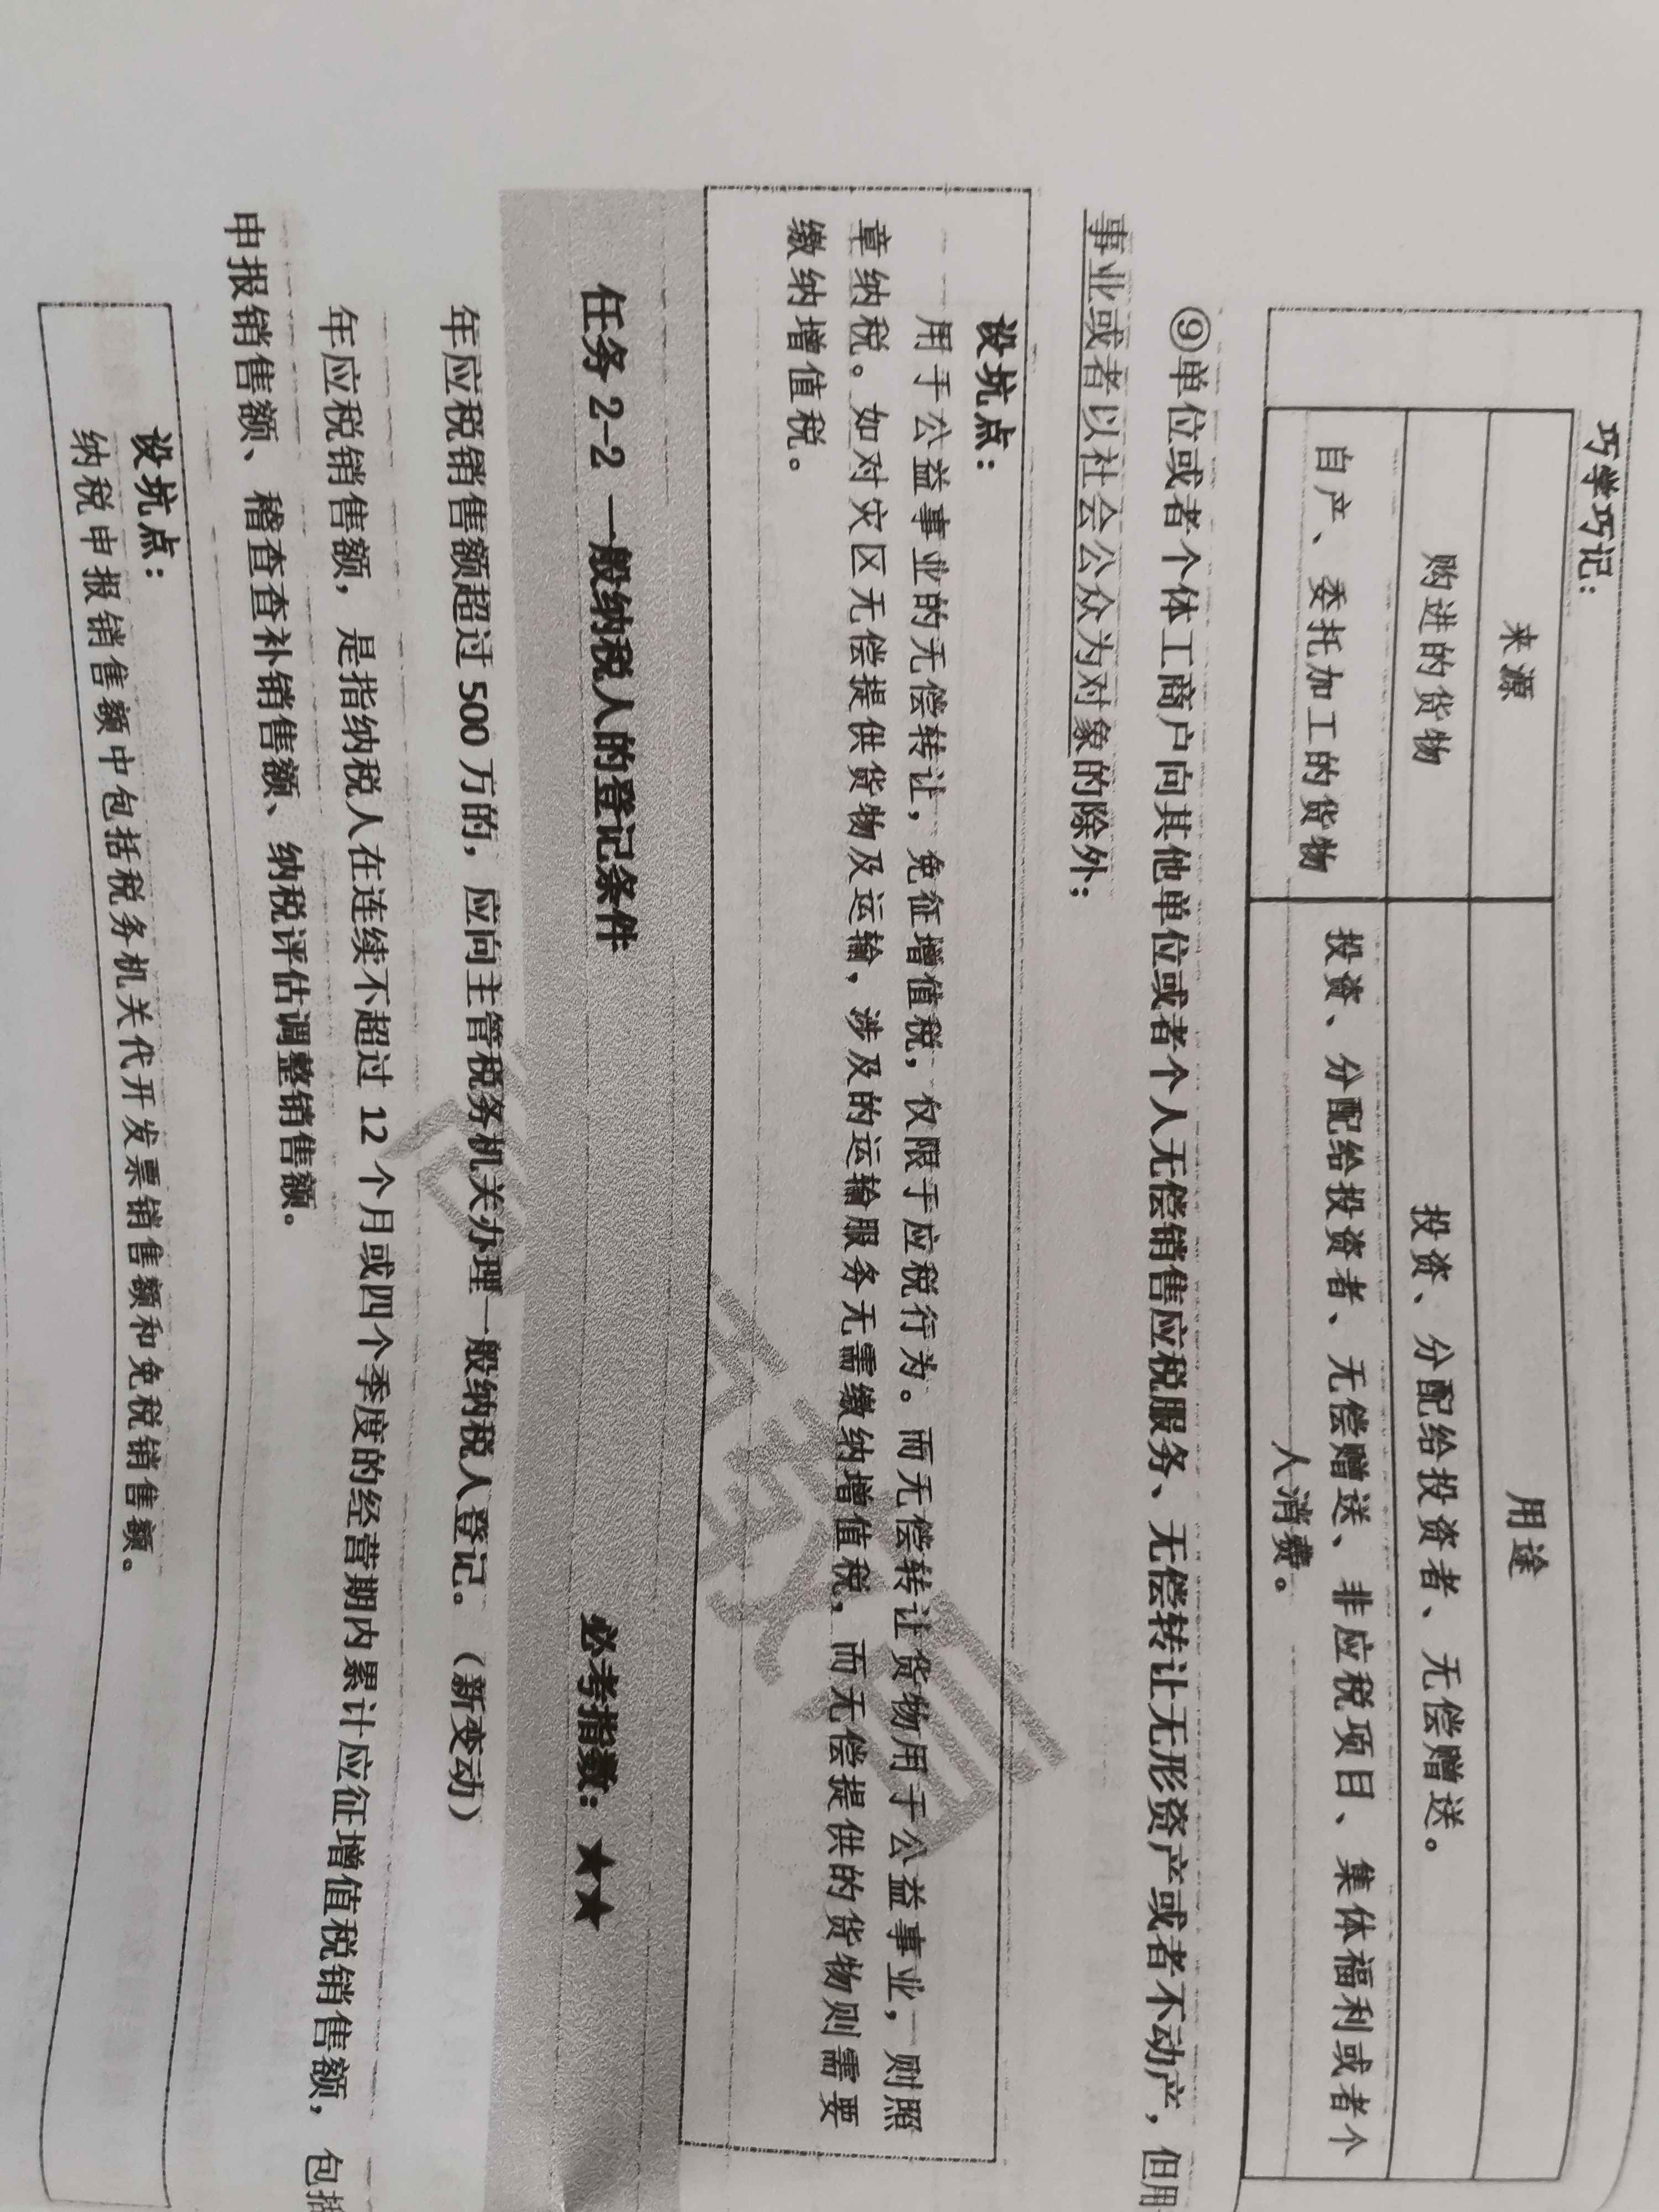 巧学巧记：
来源 用途
购进的货物 投资、分配给投资者、无偿赠送。
自产、委托加工的货物 投资、分配给投资者、无偿赠送、非应税项目、集体福利或者个
人消费。
⑨单位或者个体工商户向其他单位或者个人无偿销售应税服务、无偿转让无形资产或者不动产，但用
事业或者以社会公众为对象的除外；
设坑点：
用于公益事业的无偿转让，免征增值税，仅限于应税行为。而无偿转让货物用于公益事业，则照
章纳税。如对灾区无偿提供货物及运输，涉及的运输服务无需缴纳增值税，而无偿提供的货物则需要
缴纳增值税。
任务 2-2 一般纳税人的登记条件 必考指数：★★
年应税销售额超过 500 万的，应向主管税务机关办理一般纳税人登记。（新变动）
年应税销售额，是指纳税人在连续不超过 12 个月或四个季度的经营期内累计应征增值税销售额，包括
申报销售额、稽查查补销售额、纳税评估调整销售额。
设坑点：
纳税申报销售额中包括税务机关代开发票销售额和免税销售额。